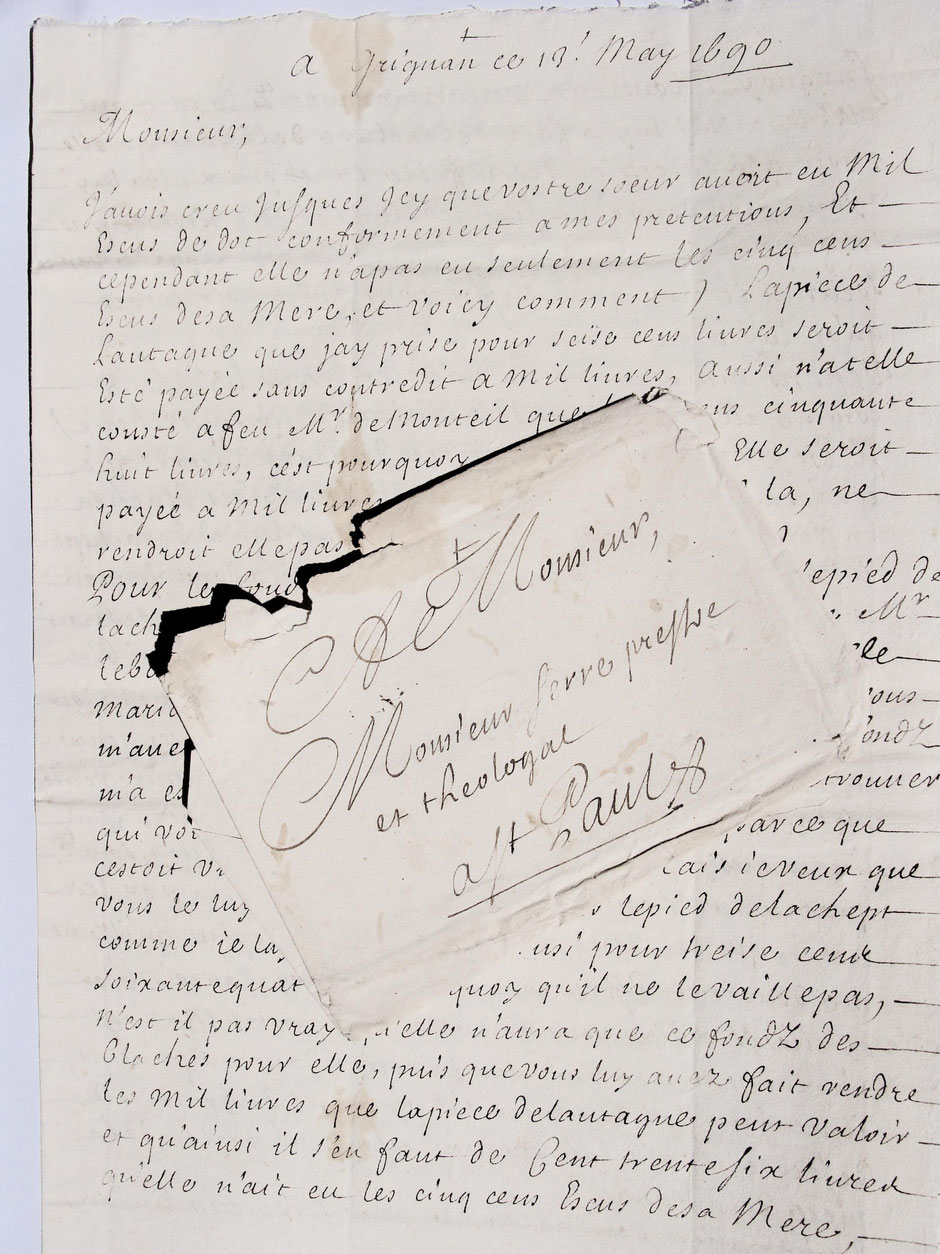 a Grignan ce 13.e May 1690
Monsieur,
J'avois creu Jusques Jcy que vostre soeur avoit eu Mil
Escus de dot conformement a mes pretentions, Et
cependant elle n'a pas eu seulement les cinq cens
Escus de sa Mere, et voicy comment) La piece de
Lautagne que jay prise pour seise cens livres seroit
Esté payée sans contredit a Mil livres, aussi n'atelle
cousté a feu Mr. de Monteil que cinquante
huit livres, c'est pourquoy Elle seroit
payée a Mil livres la, ne
rendroit elle pas
Pour le lepied de
Mr
m'a
qui
cestoit parce que
vous le luy ieveux que
comme ie la lepied delachept
soixante quat usi pour treise cens
quoy qu'il ne le vaille pas,
N'est il pas vray qu'elle n'aura que ce fondz des
Blaches pour elle, puis que vous luy avez fait vendre
les Mil livres que la piece de lautagne peut valoir
et qu'ainsi il s'en faut de Cent trente six livres
qu'elle n'ait eu les cinq cens Escus de sa Mere,
A Monsieur,
Monsieur Serre prestre
et theologal
a St Paul